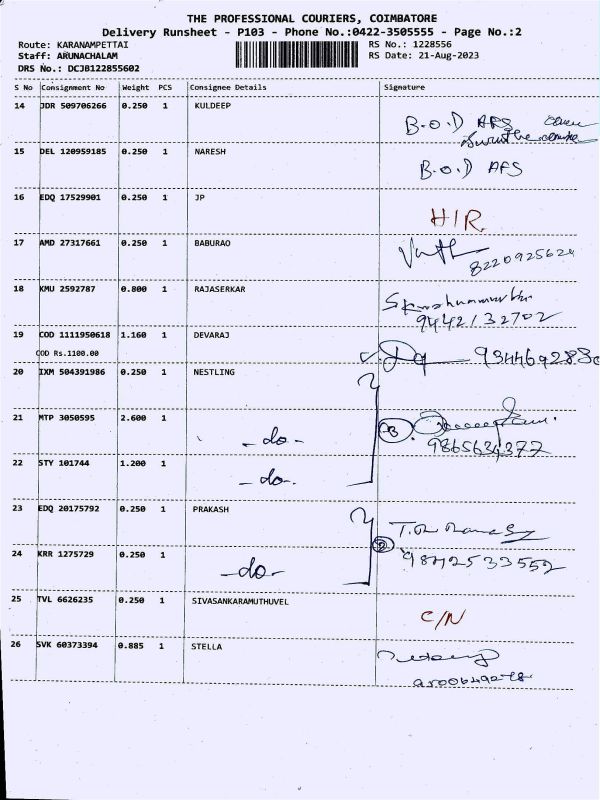 THE PROFESSIONAL COURIERS, COIMBATORE
Delivery Runsheet - P103 - Phone No.:0422-3505555 - Page No.:2
Route: KARANAMPETTAI RS No.: 1228556
Staff: ARUNACHALAM RS Date: 21-Aug-2023
DRS No.: DCJB122855602
S No Consignment No Weight PCS Consignee Details Signature
14 JDR 509706266 0.250 1 KULDEEP
B.O.D AFS
15 DEL 120959185 0.250 1 NARESH
B.O.D AFS
16 EDQ 17529901 0.250 1 JP
H/R
17 AMD 27317661 0.250 1 BABURAO
8220925624
18 KMU 2592787 0.800 1 RAJASERKAR
9442132702
19 COD 1111950618 1.160 1 DEVARAJ
COD Rs.1100.00
20 IXM 504391986 0.250 1 NESTLING
21 MTP 3050595 2.600 1
-do-
9865634377
22 STY 101744 1.200 1
-do-
23 EDQ 20175792 0.250 1 PRAKASH
24 KRR 1275729 0.250 1
-do-
9842533552
25 TVL 6626235 0.250 1 SIVASANKARAMUTHUVEL
C/N
26 SVK 60373394 0.885 1 STELLA